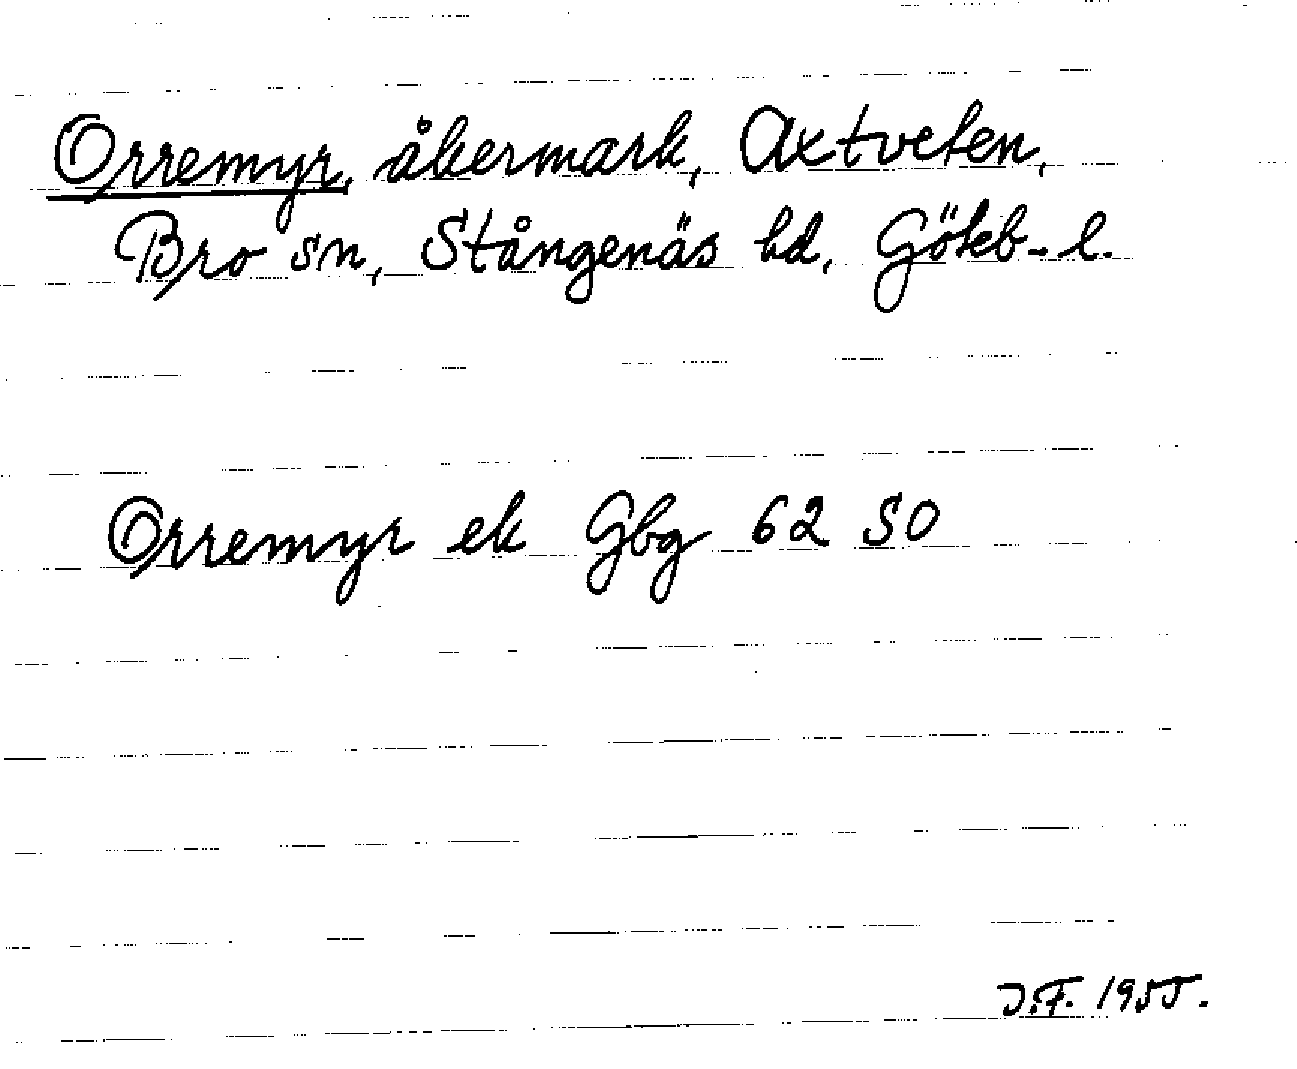 Orremyr, åkermark, Axtveten,
Bro sn, Stångenäs hd, Göteb-l.
Orremyr ek Gbg 62 SO
J.F. 1955.